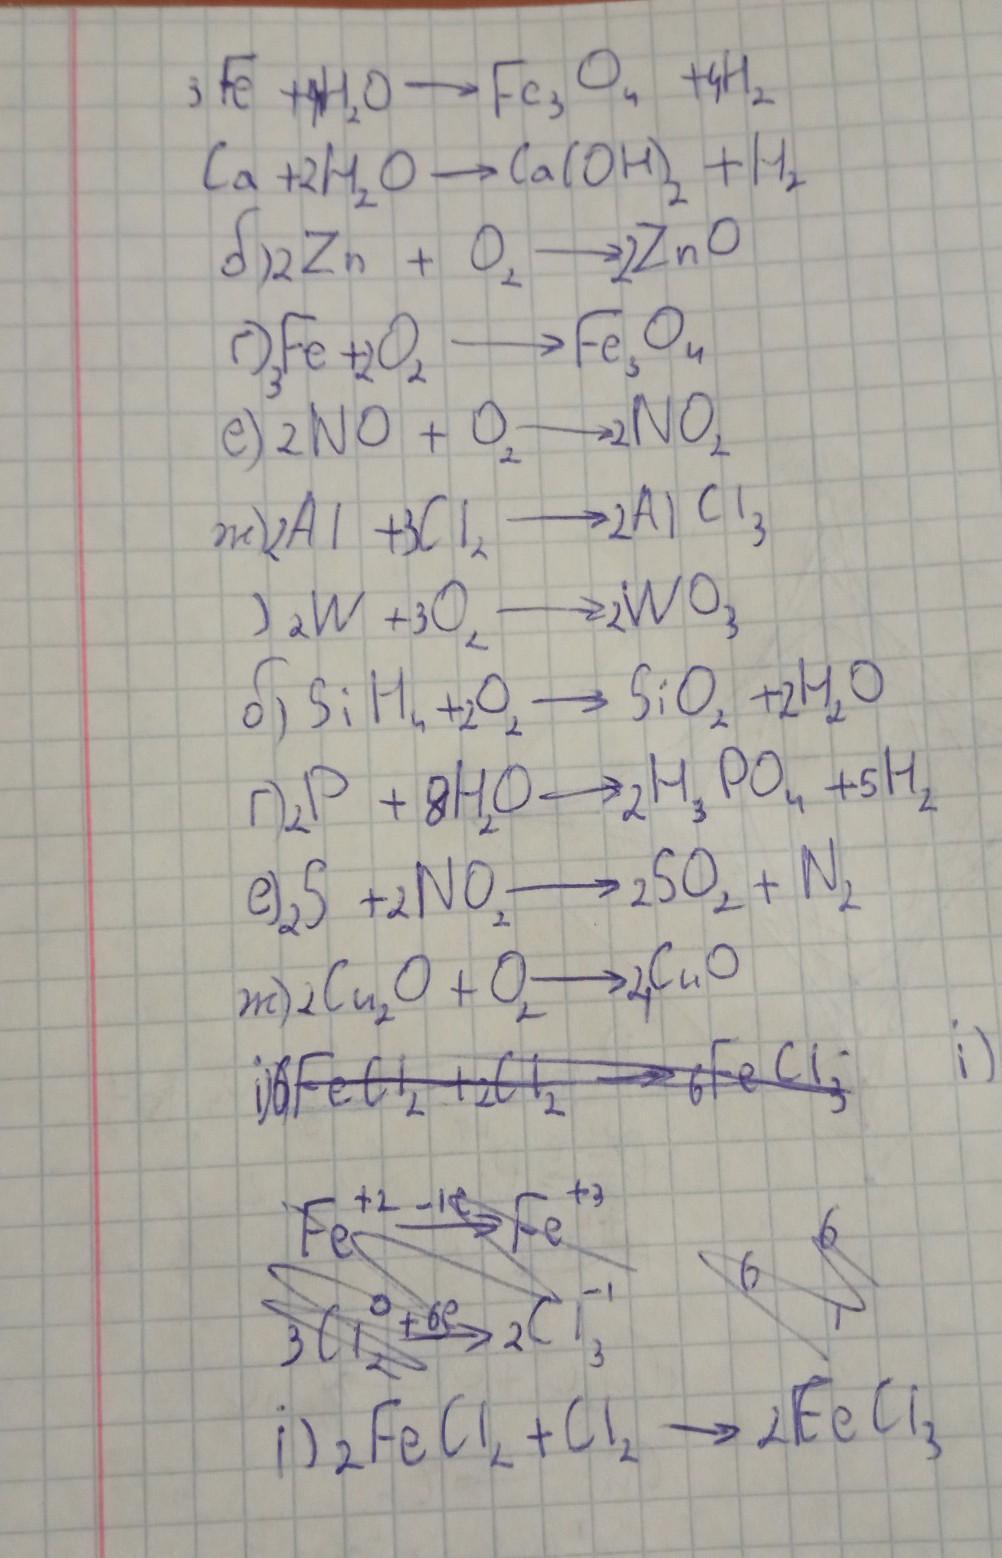 3Fe + 4H₂O → Fe₃O₄ + 4H₂
Ca + 2H₂O → Ca(OH)₂ + H₂
б) 2Zn + O₂ → 2ZnO
г) 3Fe + 2O₂ → Fe₃O₄
е) 2NO + O₂ → 2NO₂
ж) 2Al + 3Cl₂ → 2AlCl₃
) 2W + 3O₂ → 2WO₃
б) SiH₄ + 2O₂ → SiO₂ + 2H₂O
г) 2P + 8H₂O → 2H₃PO₄ + 5H₂
е) 2S + 2NO₂ → 2SO₂ + N₂
ж) 2Cu₂O + O₂ → 4CuO
i) 6FeCl₂ + 2Cl₂ → 6FeCl₃ i)
Fe⁺² -1e → Fe⁺³
6 6
3Cl₂⁰ +6e → 2Cl₃⁻¹ 1
i) 2FeCl₂ + Cl₂ → 2FeCl₃